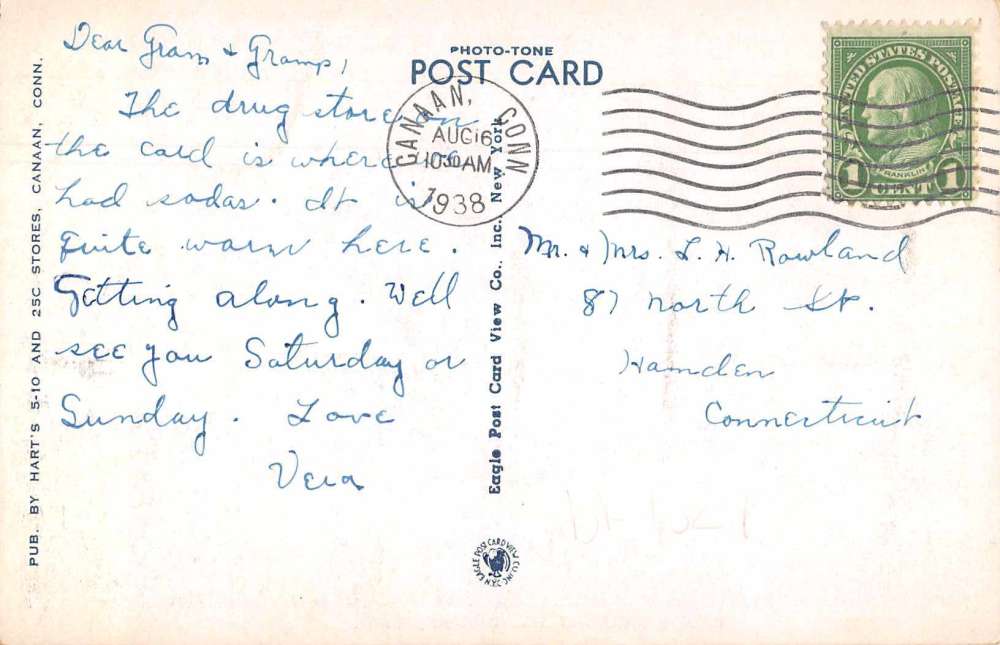 Dear Gram & Gramp,
The drug store on
the card is where we
had sodas. It is
quite warm here.
Getting along. Well
see you Saturday or
Sunday. Love
Vera
PHOTO-TONE
POST CARD
CANAAN, CONN
AUG 16
1030 AM
1938
UNITED STATES POSTAGE
FRANKLIN
1 CENT 1
Mr. & Mrs. L. H. Rowland
87 North St.
Hamden
Connecticut
PUB. BY HART'S 5-10 AND 25C STORES, CANAAN, CONN.
Eagle Post Card View Co., Inc. New York
EAGLE POST CARD VIEW CO. INC. N.Y.C.